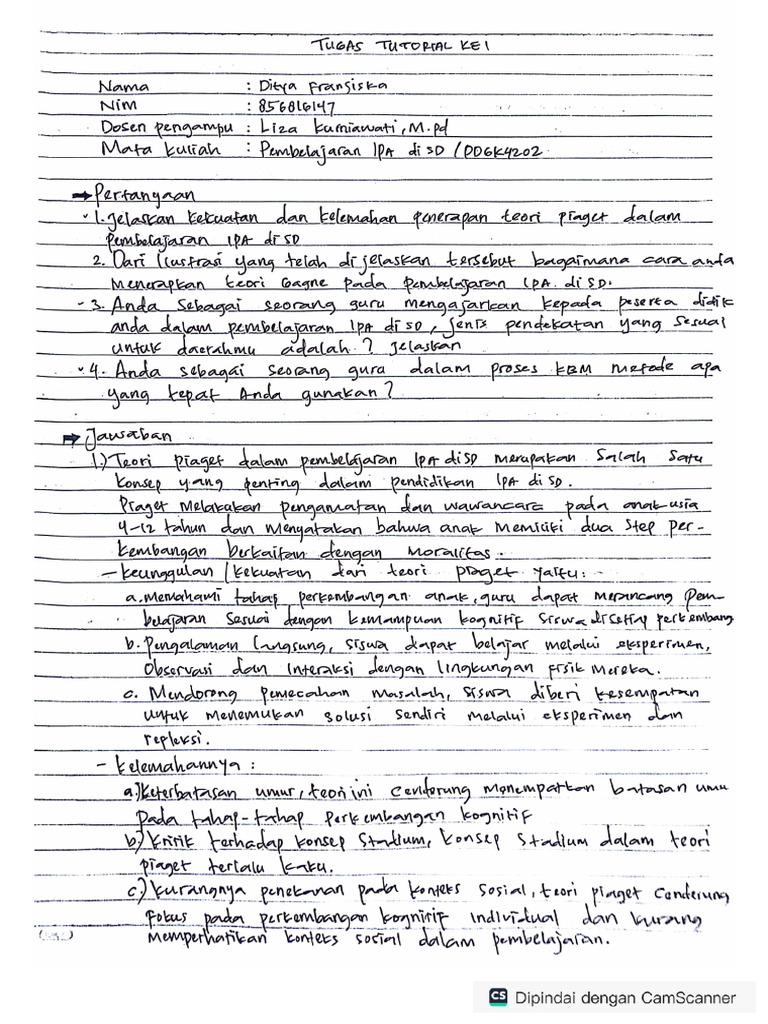 TUGAS TUTORIAL KE 1
Nama : Ditya Fransiska
Nim : 856816147
Dosen pengampu : Liza Kurniawati, M.pd
Mata kuliah : Pembelajaran IPA di SD / PDGK4202
→ Pertanyaan
1. Jelaskan kekuatan dan kelemahan penerapan teori piaget dalam
pembelajaran IPA di SD
2. Dari Ilustrasi yang telah dijelaskan tersebut bagaimana cara anda
menerapkan teori Gagne pada pembelajaran IPA di SD.
- 3. Anda sebagai seorang guru mengajarkan kepada peserta didik
anda dalam pembelajaran IPA di SD, jenis pendekatan yang sesuai
untuk daerahmu adalah ? jelaskan
4. Anda sebagai seorang guru dalam proses KBM metode apa
yang tepat Anda gunakan ?
→ Jawaban
1.) Teori piaget dalam pembelajaran IPA di SD merupakan salah satu
konsep yang penting dalam pendidikan IPA di SD.
Piaget melakukan pengamatan dan wawancara pada anak usia
4-12 tahun dan menyatakan bahwa anak memiliki dua step per-
kembangan berkaitan dengan moralitas.
- keunggulan / kekuatan dari teori piaget yaitu :
a. memahami tahap perkembangan anak, guru dapat merancang pem-
belajaran sesuai dengan kemampuan kognitif siswa disetiap perkembang
b. Pengalaman langsung, siswa dapat belajar melalui eksperimen,
observasi dan interaksi dengan lingkungan fisik mereka.
c. Mendorong pemecahan masalah, siswa diberi kesempatan
untuk menemukan solusi sendiri melalui eksperimen dan
repleksi.
- kelemahannya :
a.) keterbatasan umur, teori ini cenderung menempatkan batasan umu
pada tahap-tahap perkembangan kognitif
b) Kritik terhadap konsep stadium, konsep stadium dalam teori
piaget terlalu kaku.
c.) kurangnya penekanan pada konteks sosial, teori piaget cenderung
fokus pada perkembangan kognitif individual dan kurang
memperhatikan konteks sosial dalam pembelajaran.
CS Dipindai dengan CamScanner